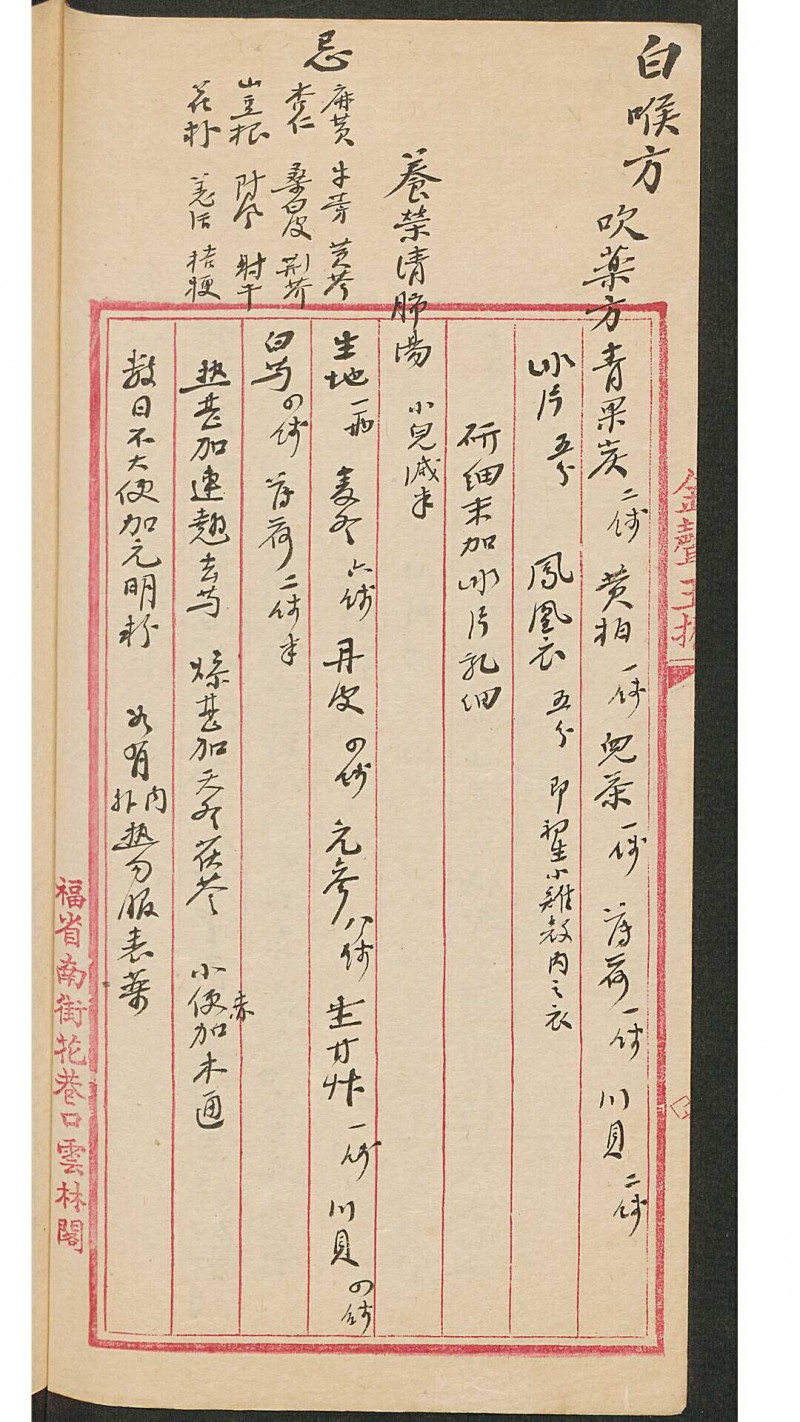 白喉方
吹藥方 青果炭二錢 黃柏一錢 兒茶一錢 薄荷一錢 川貝二錢
冰片五分 鳳凰衣五分 即初生小雞殼內之衣
研細末加冰片乳細
養榮清肺湯 小兒減半
生地一兩 麦冬六錢 丹皮四錢 元參八錢 生甘艸一錢 川貝四錢
白芍四錢 薄荷二錢半
熱甚加連翹去芍 燥甚加天冬茯苓 小便赤加木通
數日不大便加元明粉 如有內外熱勿服表藥
忌
麻黃 牛蒡 黃芩
杏仁 桑白皮 荊芥
山豆根 防風 射干
花朴 羌活 桔梗
福省南街花巷口雲林閣
金聲玉振